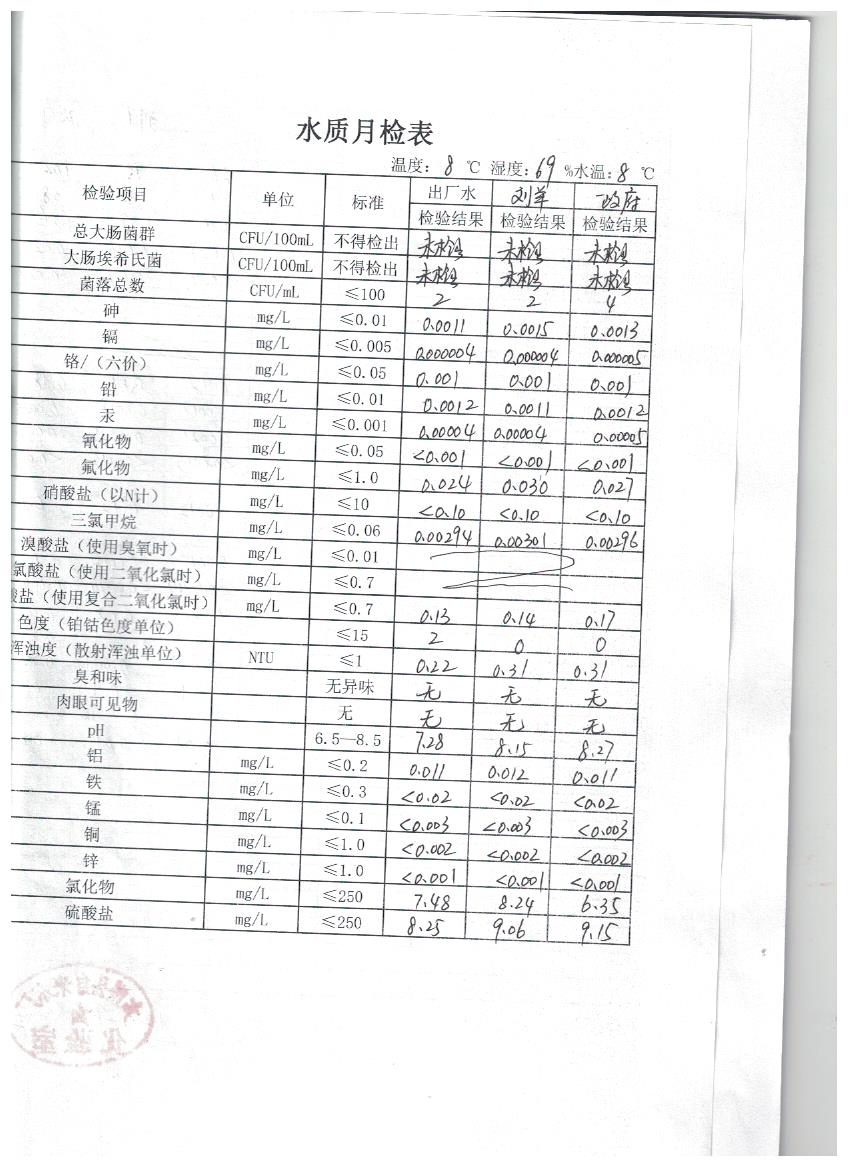 水质月检表
温度: 8 ℃ 湿度: 69 %水温: 8 ℃
检验项目 单位 标准 出厂水 刘羊 政府
检验结果 检验结果 检验结果
总大肠菌群 CFU/100mL 不得检出 未检出 未检出 未检出
大肠埃希氏菌 CFU/100mL 不得检出 未检出 未检出 未检出
菌落总数 CFU/mL ≤100 2 2 4
砷 mg/L ≤0.01 0.0011 0.0015 0.0013
镉 mg/L ≤0.005 0.000004 0.000004 0.000005
铬/(六价) mg/L ≤0.05 0.001 0.001 0.001
铅 mg/L ≤0.01 0.0012 0.0011 0.0012
汞 mg/L ≤0.001 0.00004 0.00004 0.00005
氰化物 mg/L ≤0.05 <0.001 <0.001 <0.001
氟化物 mg/L ≤1.0 0.024 0.030 0.027
硝酸盐(以N计) mg/L ≤10 <0.10 <0.10 <0.10
三氯甲烷 mg/L ≤0.06 0.00294 0.00301 0.00296
溴酸盐(使用臭氧时) mg/L ≤0.01
氯酸盐(使用二氧化氯时) mg/L ≤0.7
酸盐(使用复合二氧化氯时) mg/L ≤0.7 0.13 0.14 0.17
色度(铂钴色度单位) ≤15 2 0 0
浑浊度(散射浑浊单位) NTU ≤1 0.22 0.31 0.31
臭和味 无异味 无 无 无
肉眼可见物 无 无 无 无
pH 6.5—8.5 7.28 8.15 8.27
铝 mg/L ≤0.2 0.011 0.012 0.011
铁 mg/L ≤0.3 <0.02 <0.02 <0.02
锰 mg/L ≤0.1 <0.003 <0.003 <0.003
铜 mg/L ≤1.0 <0.002 <0.002 <0.002
锌 mg/L ≤1.0 <0.001 <0.001 <0.001
氯化物 mg/L ≤250 7.48 8.24 6.35
硫酸盐 mg/L ≤250 8.25 9.06 9.15
化验室